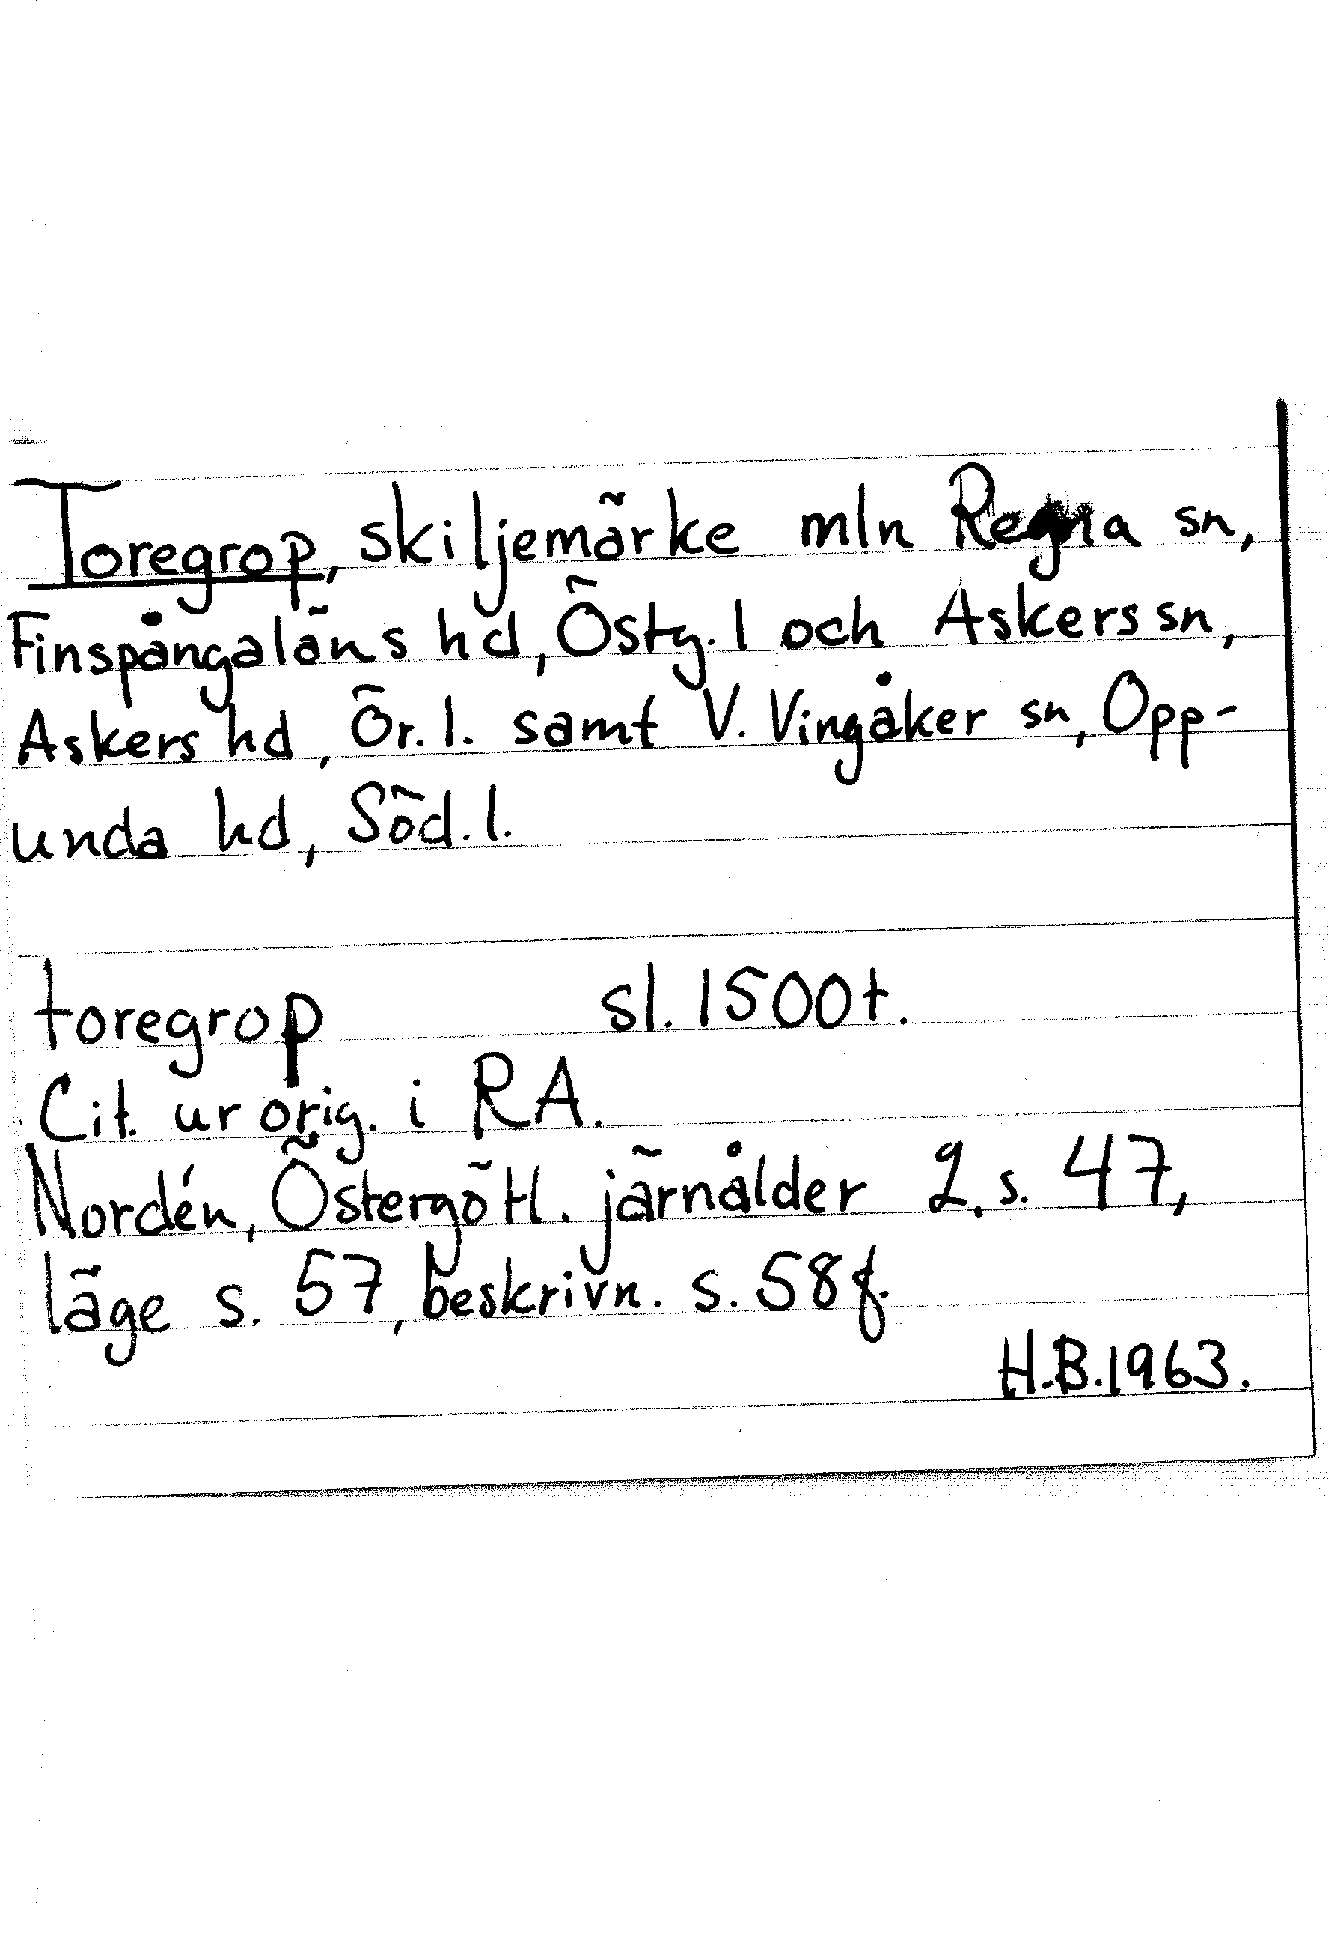 Toregrop, skiljemärke mln Regna sn,
Finspångaläns hd, Östg. l och Askers sn,
Askers hd, Ör. l. samt V. Vingåker sn, Opp-
unda hd, Söd. l.
toregrop sl. 1500t.
Cit. ur orig. i RA.
Nordén, Östergötl. järnålder 2. s. 47,
läge s. 57, beskrivn. s. 58 f.
H.B. 1963.